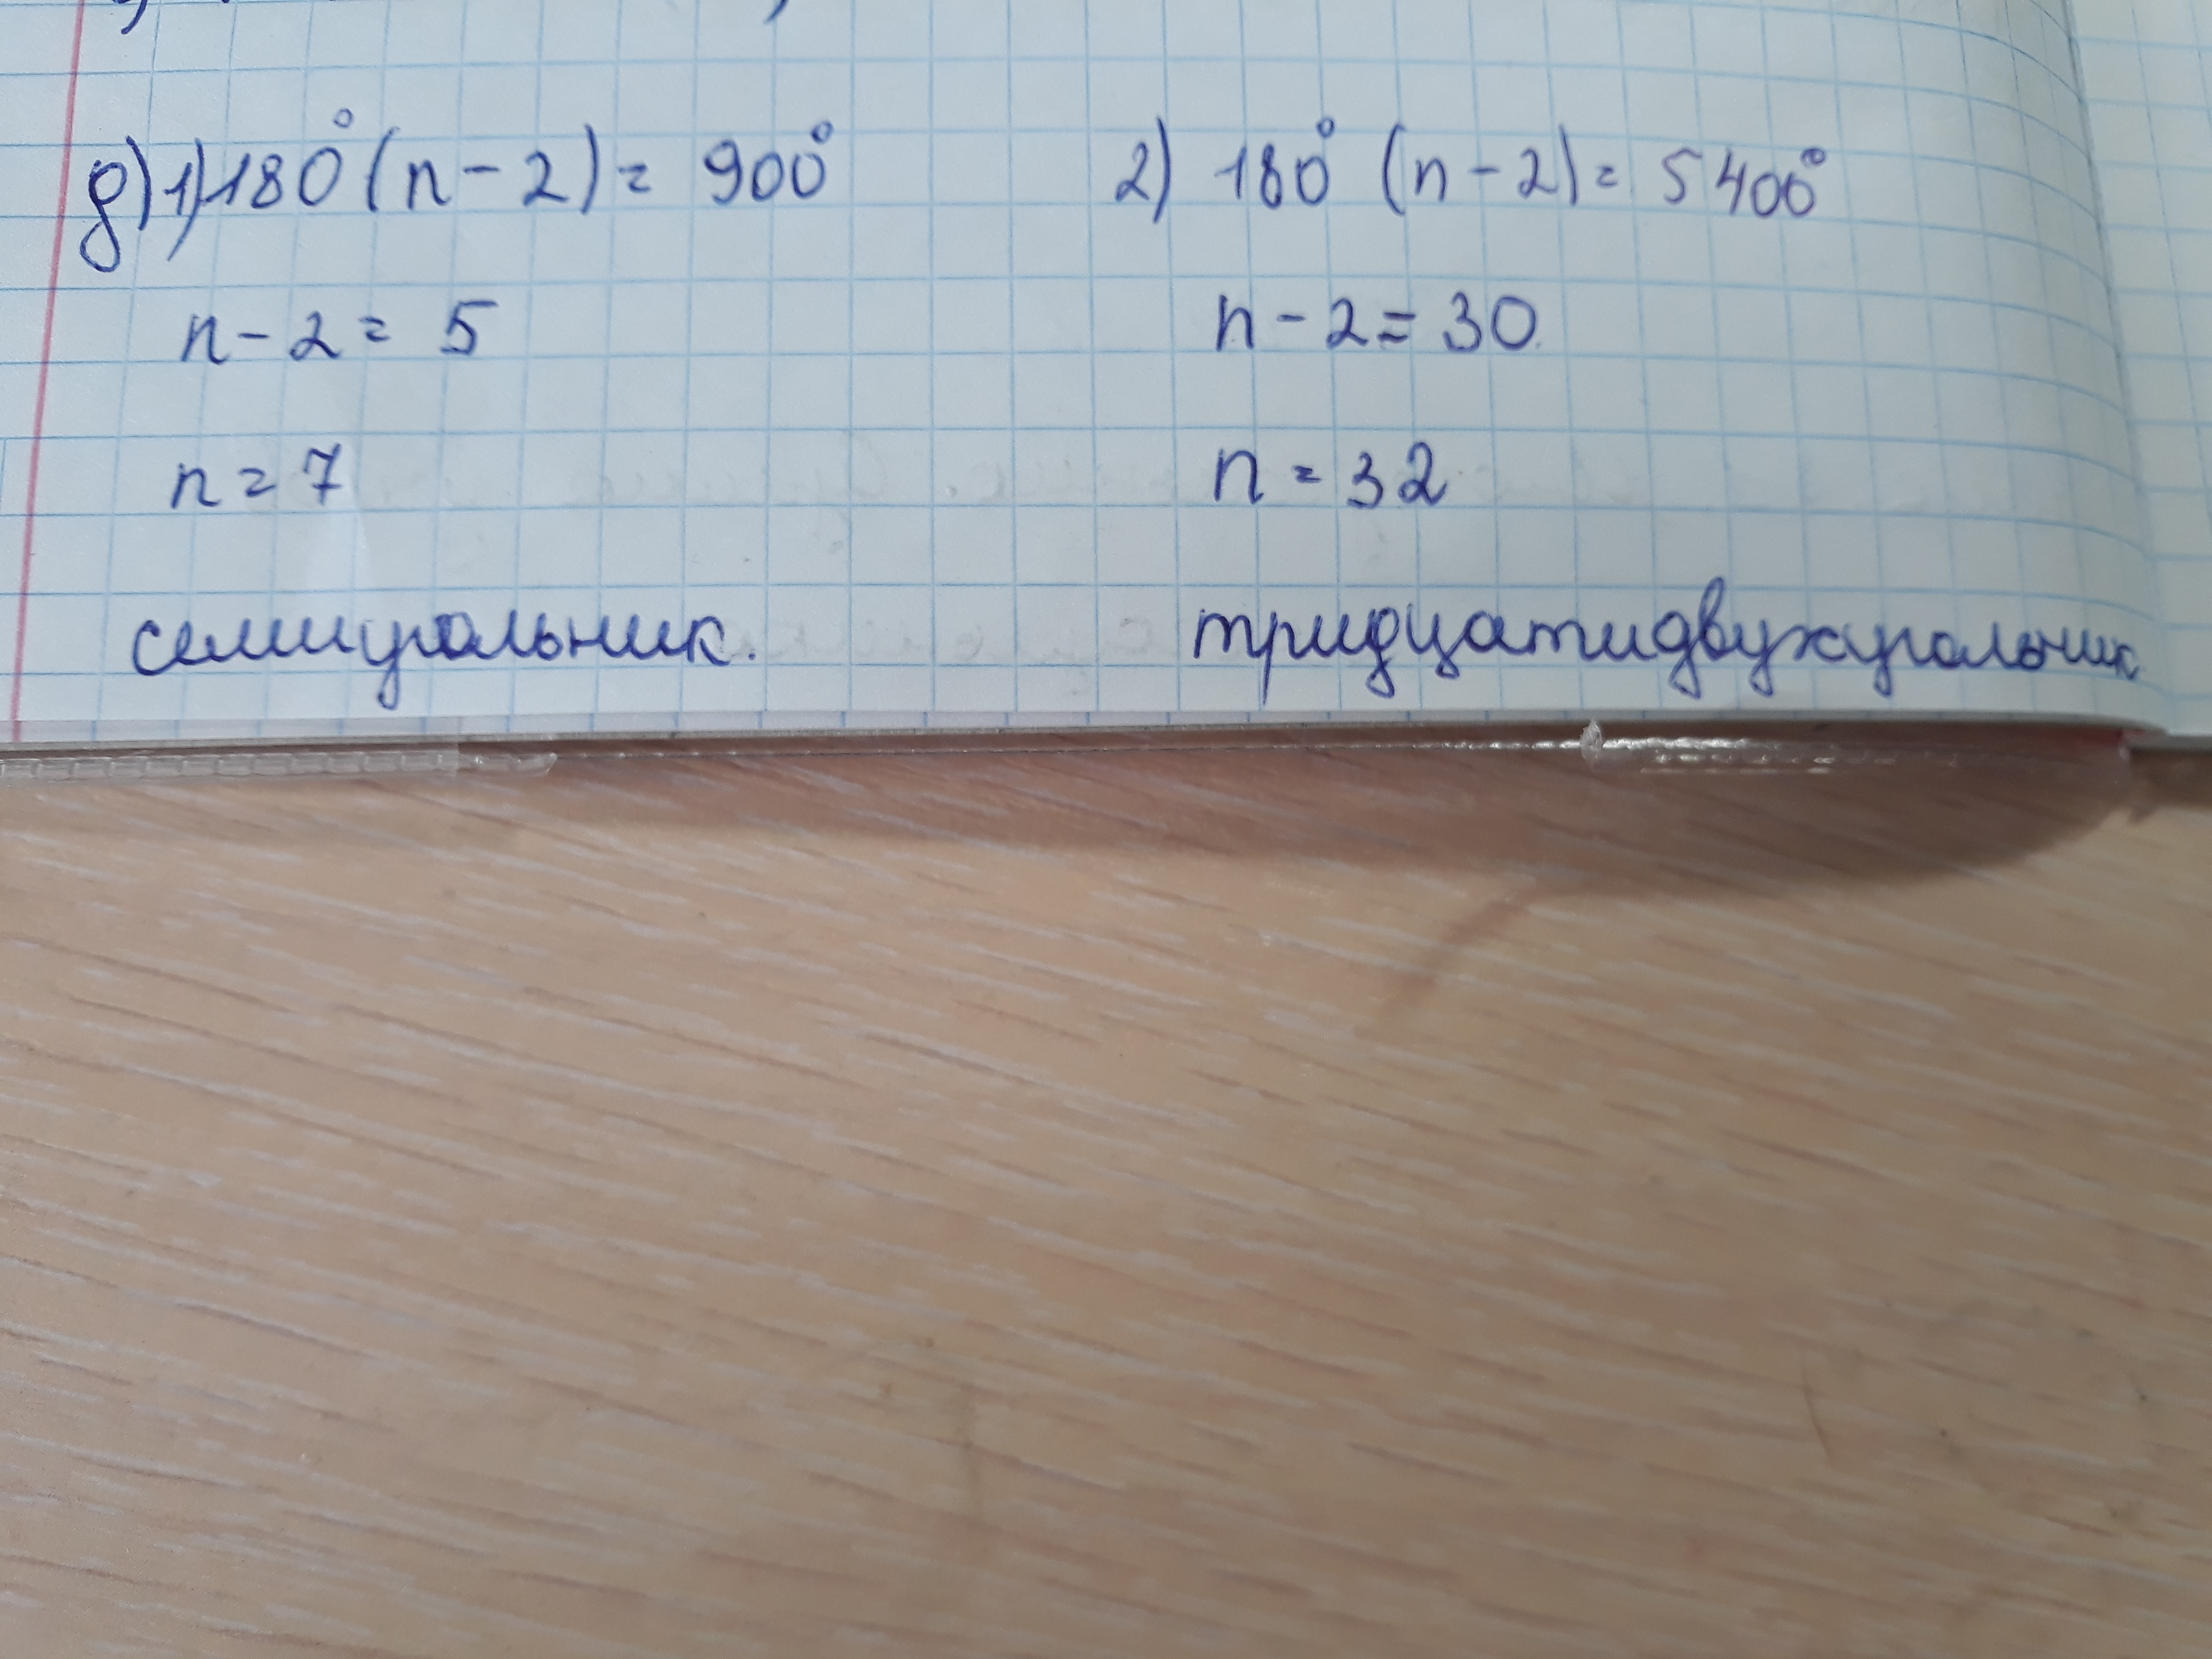 д) 1) 180° (n - 2) = 900°
n - 2 = 5
n = 7
семиугольник.
2) 180° (n - 2) = 5400°
n - 2 = 30
n = 32
тридцатидвухугольник